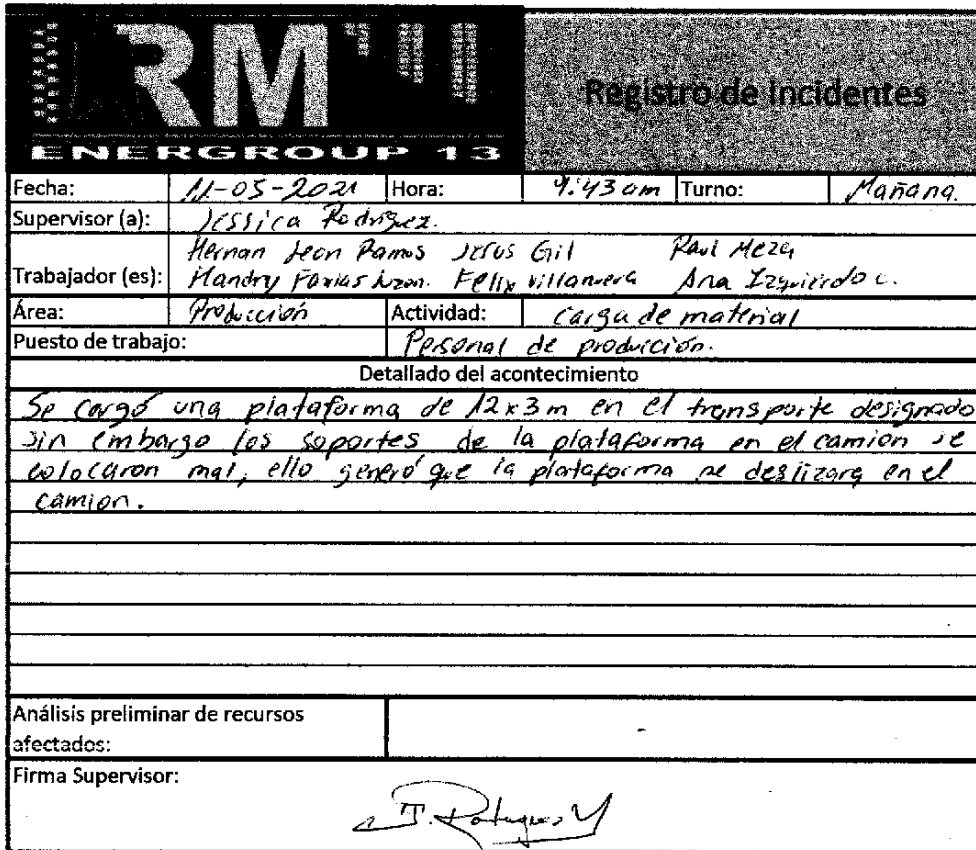 RM
ENERGROUP 13
Registro de Incidentes
Fecha: 11-05-2021 Hora: 9:43 am Turno: Mañana.
Supervisor (a): Jessica Rodriguez.
Hernan Leon Ramos Jesus Gil Raul Meza
Trabajador (es): Handry Farias Felix Villanueva Ana Izquierdo C.
Área: Producción Actividad: Carga de material
Puesto de trabajo: Personal de producción.
Detallado del acontecimiento
Se cargó una plataforma de 12x3 m en el transporte designado
sin embargo los soportes de la plataforma en el camion se
colocaron mal, ello generó que la plataforma se deslizara en el
camion.
Análisis preliminar de recursos
afectados: -
Firma Supervisor: